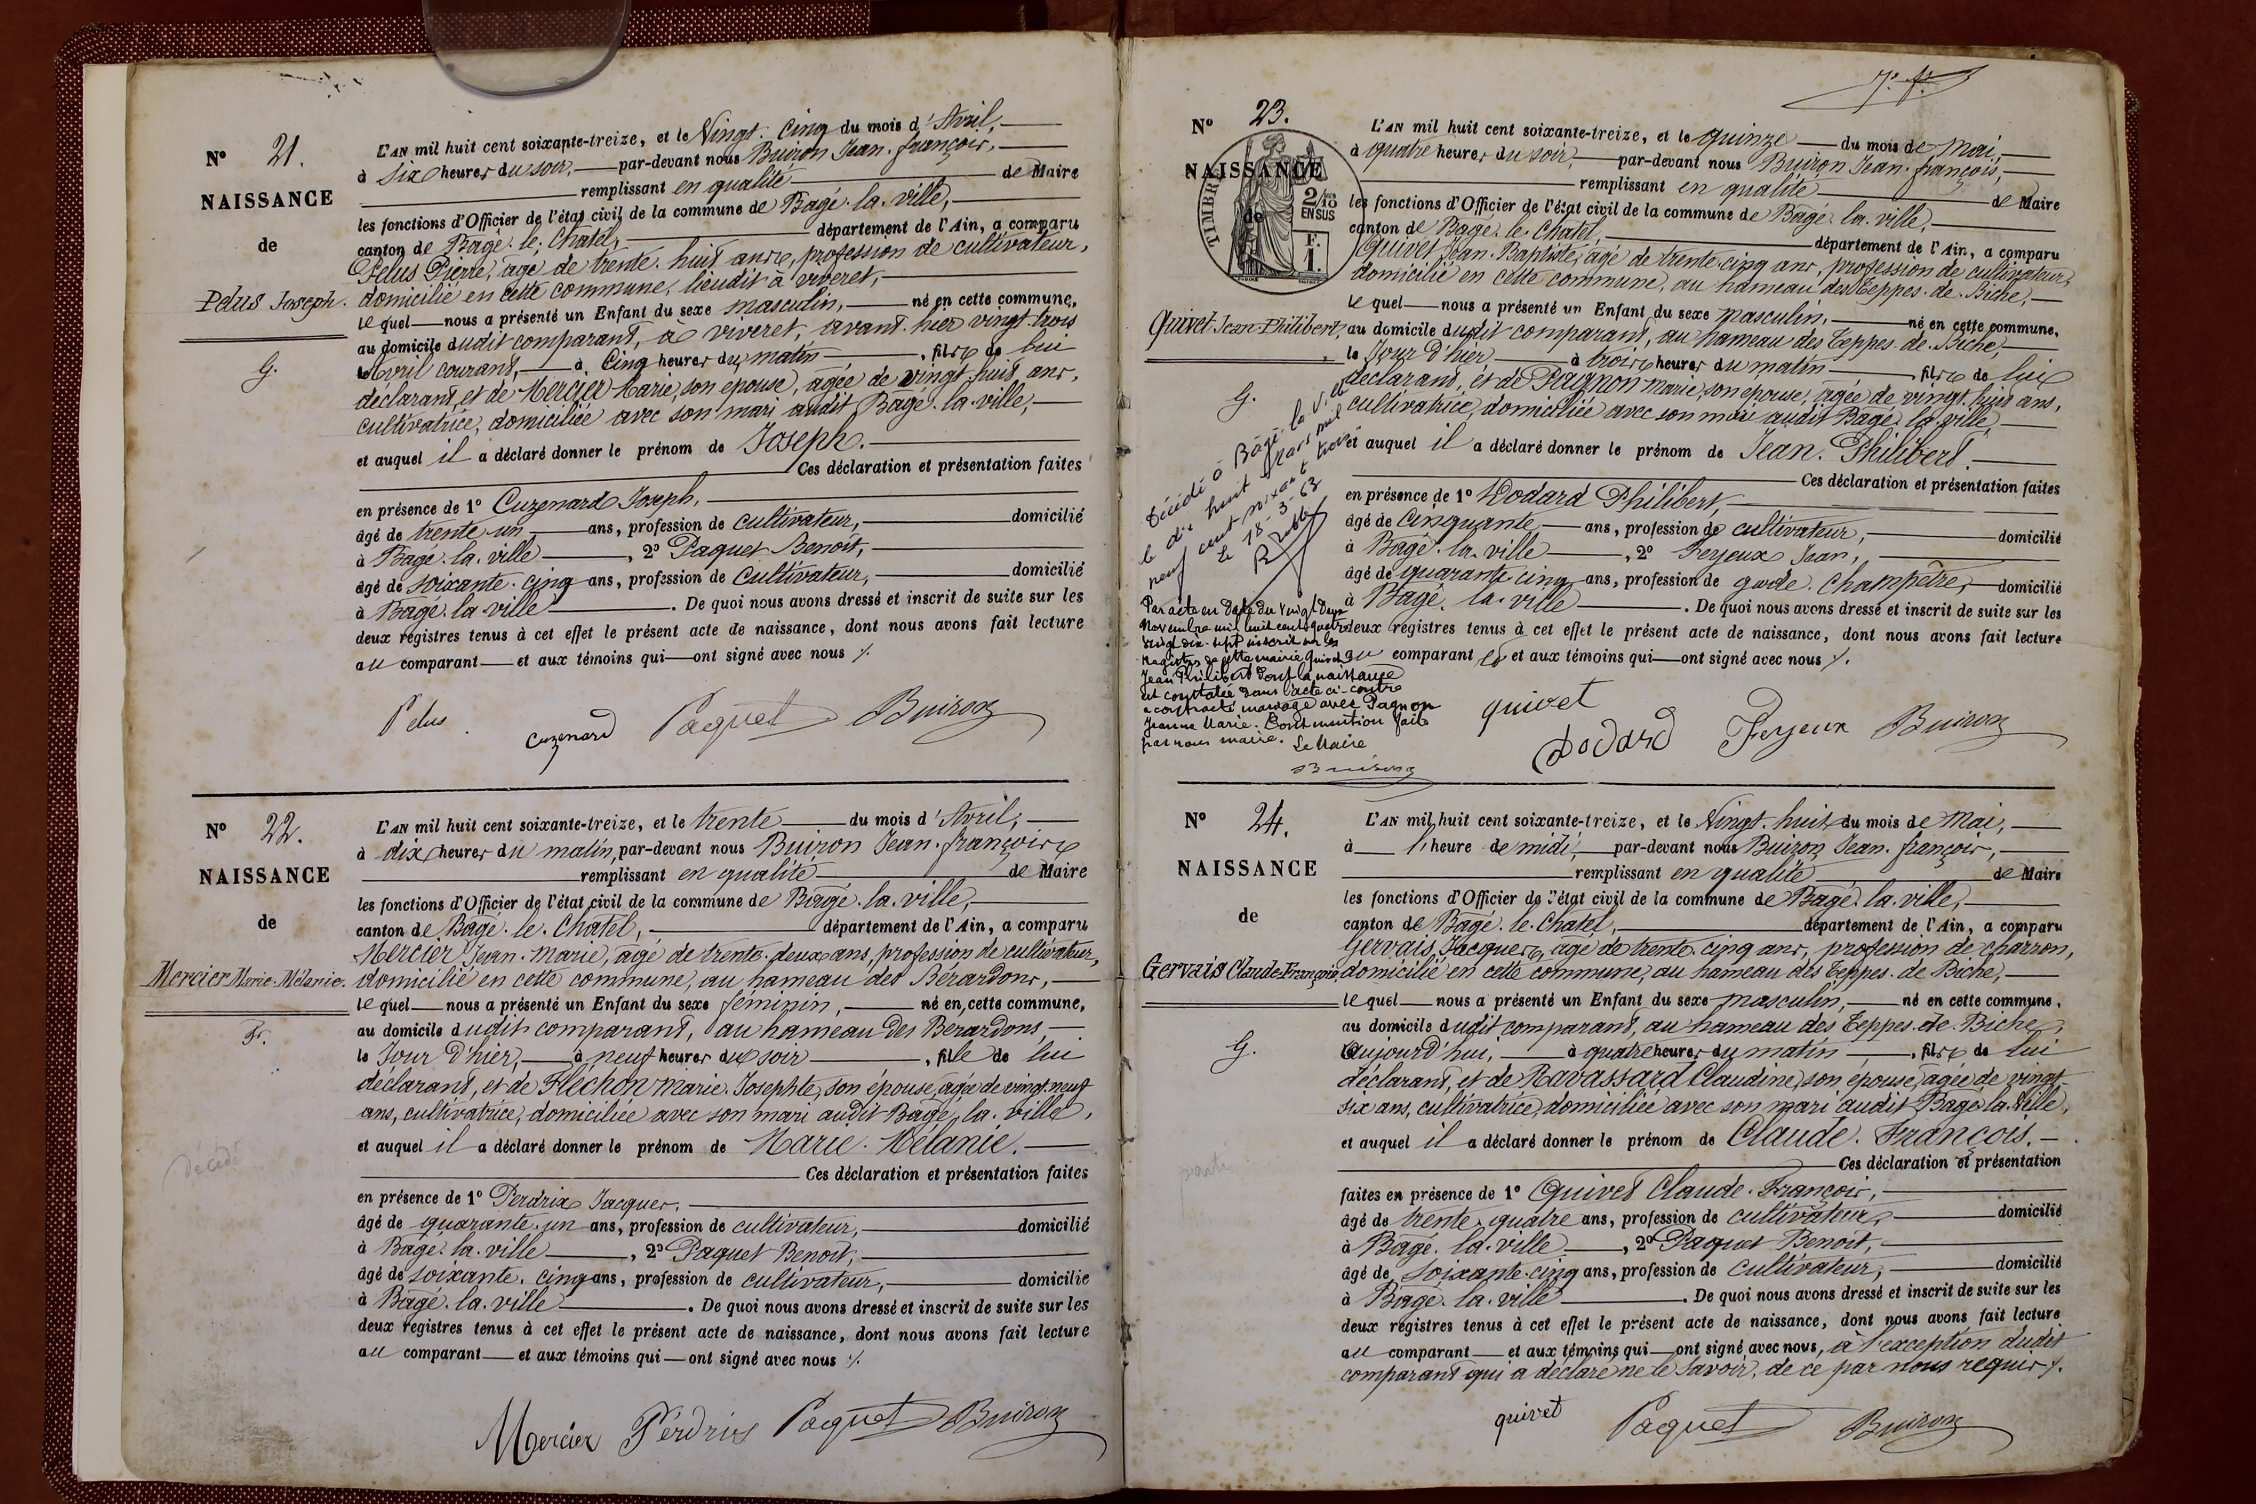 N° 21.
NAISSANCE
de
Pelus Joseph.
G.
L'AN mil huit cent soixante-treize, et le Vingt-Cinq du mois d'Avril,
à six heures du soir, par-devant nous Buiron Jean-françois,
remplissant en qualité de Maire
les fonctions d'Officier de l'état civil de la commune de Bagé-la-ville,
canton de Bagé-le-Chatel, département de l'Ain, a comparu
Pelus Pierre, âgé de trente-huit ans, profession de cultivateur,
domicilié en cette commune, lieudit à viveret,
lequel nous a présenté un Enfant du sexe masculin, né en cette commune,
au domicile dudit comparant, à viveret, avant-hier vingt-trois
Avril courant, à Cinq heures du matin, fils de lui
déclarant, et de Mercier Marie, son épouse, âgée de vingt-huit ans,
cultivatrice, domiciliée avec son mari audit Bagé-la-ville,
et auquel il a déclaré donner le prénom de Joseph.
Ces déclaration et présentation faites
en présence de 1° Cuzenard Joseph,
âgé de trente-un ans, profession de cultivateur, domicilié
à Bagé-la-ville, 2° Paquet Benoit,
âgé de soixante-cinq ans, profession de Cultivateur, domicilié
à Bagé-la-ville. De quoi nous avons dressé et inscrit de suite sur les
deux registres tenus à cet effet le présent acte de naissance, dont nous avons fait lecture
au comparant et aux témoins qui ont signé avec nous ./.
Pelus Cuzenard Paquet Buiron
N° 22.
NAISSANCE
de
Mercier Marie-Mélanie.
Fr.
décédé
L'AN mil huit cent soixante-treize, et le trente du mois d'Avril,
à dix heures du matin, par-devant nous Buiron Jean-françois
remplissant en qualité de Maire
les fonctions d'Officier de l'état civil de la commune de Bagé-la-ville,
canton de Bagé-le-Chatel, département de l'Ain, a comparu
Mercier Jean-Marie, âgé de trente-deux ans, profession de cultivateur,
domicilié en cette commune, au hameau des Bérardons,
lequel nous a présenté un Enfant du sexe féminin, né en cette commune,
au domicile dudit comparant, au hameau des Bérardons,
le Jour d'hier, à neuf heures du soir, fille de lui
déclarant, et de Fléchon Marie-Josephte, son épouse, âgée de vingt-neuf
ans, cultivatrice, domiciliée avec son mari audit Bagé-la-ville,
et auquel il a déclaré donner le prénom de Marie-Mélanie.
Ces déclaration et présentation faites
en présence de 1° Perdrix Jacques,
âgé de quarante-un ans, profession de cultivateur, domicilié
à Bagé-la-ville, 2° Paquet Benoit,
âgé de soixante-cinq ans, profession de cultivateur, domicilié
à Bagé-la-ville. De quoi nous avons dressé et inscrit de suite sur les
deux registres tenus à cet effet le présent acte de naissance, dont nous avons fait lecture
au comparant et aux témoins qui ont signé avec nous ./.
Mercier Pérdrix Paquet Buiron
7e f.
N° 23.
NAISSANCE
de
TIMBRE
2/10
EN SUS
F.
1.
Quivet Jean-Philibert.
G.
Décédé à Bagé-la-Ville
le dix huit Mars mil
neuf cent soixante trois
Le 18-3-63
Par acte en date du vingt deux
Novembre mil huit cent quatre
vingt dix-sept inscrit sur les
registres de cette mairie Quivet
Jean Philibert dont la naissance
est constatée dans l'acte ci-contre
a contracté mariage avec Pagnon
Jeanne Marie. Dont mention faite
par nous maire. Le Maire
Buiron
L'AN mil huit cent soixante-treize, et le quinze du mois de Mai,
à quatre heures du soir, par-devant nous Buiron Jean-françois,
remplissant en qualité de Maire
les fonctions d'Officier de l'état civil de la commune de Bagé-la-ville,
canton de Bagé-le-Chatel, département de l'Ain, a comparu
Quivet Jean-Baptiste, âgé de trente-cinq ans, profession de cultivateur,
domicilié en cette commune, au hameau des Teppes-de-Biche,
lequel nous a présenté un Enfant du sexe masculin, né en cette commune,
au domicile dudit comparant, au hameau des Teppes-de-Biche,
le Jour d'hier à trois heures du matin, fils de lui
déclarant, et de Pagnon Marie, son épouse, âgée de vingt-huit ans,
cultivatrice, domiciliée avec son mari audit Bagé-la-ville,
et auquel il a déclaré donner le prénom de Jean-Philibert.
Ces déclaration et présentation faites
en présence de 1° Dodard Philibert,
âgé de Cinquante ans, profession de cultivateur, domicilié
à Bagé-la-ville, 2° Feyeux Jean,
âgé de quarante-cinq ans, profession de garde-champêtre, domicilié
à Bagé-la-ville. De quoi nous avons dressé et inscrit de suite sur les
deux registres tenus à cet effet le présent acte de naissance, dont nous avons fait lecture
au comparant et aux témoins qui ont signé avec nous ./.
quivet Dodard Feyeux Buiron
N° 24.
NAISSANCE
de
Gervais Claude-François
G.
L'AN mil huit cent soixante-treize, et le Vingt-huit du mois de Mai,
à l'heure de midi, par-devant nous Buiron Jean-françois,
remplissant en qualité de Maire
les fonctions d'Officier de l'état civil de la commune de Bagé-la-ville,
canton de Bagé-le-Chatel, département de l'Ain, a comparu
Gervais Jacques, âgé de trente-cinq ans, profession de charron,
domicilié en cette commune, au hameau des Teppes-de-Biche,
lequel nous a présenté un Enfant du sexe masculin, né en cette commune,
au domicile dudit comparant, au hameau des Teppes-de-Biche,
Aujourd'hui, à quatre heures du matin, fils de lui
déclarant, et de Ravassard Claudine, son épouse, âgée de vingt-
six ans, cultivatrice, domiciliée avec son mari audit Bagé-la-Ville,
et auquel il a déclaré donner le prénom de Claude-François.
Ces déclaration et présentation
faites en présence de 1° Quivet Claude-François,
âgé de trente-quatre ans, profession de cultivateur, domicilié
à Bagé-la-ville, 2° Paquet Benoit,
âgé de soixante-cinq ans, profession de Cultivateur, domicilié
à Bagé-la-ville. De quoi nous avons dressé et inscrit de suite sur les
deux registres tenus à cet effet le présent acte de naissance, dont nous avons fait lecture
au comparant et aux témoins qui ont signé avec nous, à l'exception dudit
comparant qui a déclaré ne le savoir, de ce par nous requis ./.
quivet Paquet Buiron